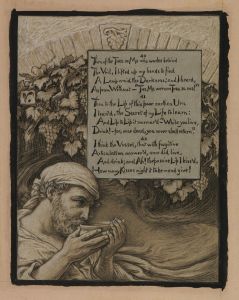 Then of the Thee in Me who works behind
The Veil, I lifted up my hands to find
A Lamp amid the Darkness; and I heard,
As from Without — "The Me within Thee blind!"
Then to the Lip of this poor earthen Urn
I lean'd, the Secret of my Life to learn:
And Lip to Lip it murmur'd — "While you live,
Drink! — for, once dead, you never shall return."
I think the Vessel, that with fugitive
Articulation answer'd, once did live,
And drink; and Ah! the passive Lip I kiss'd,
How many Kisses might it take — and give!